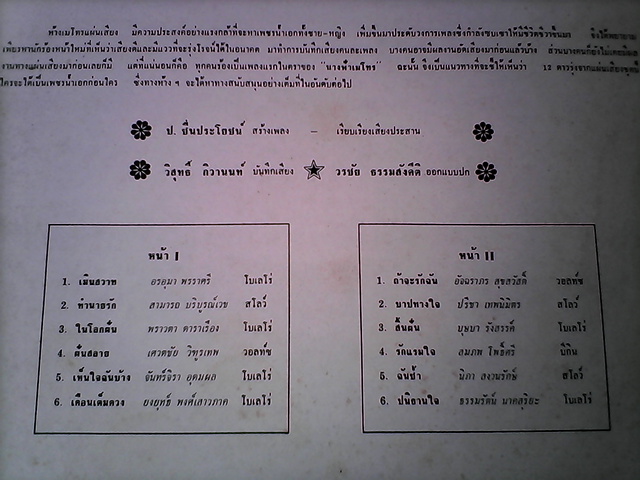 ห้างเมโทรแผ่นเสียง มีความประสงค์อย่างแรงกล้าที่จะหาเพชรน้ำเอกทั้งชาย-หญิง เพิ่มขึ้นมาประดับวงการเพลงซึ่งกำลังซบเซาให้มีชีวิตชีวาขึ้นมา จึงได้พยายาม
เพียรหานักร้องหน้าใหม่ที่เห็นว่าเสียงดีและมีแววที่จะรุ่งโรจน์ได้ในอนาคต มาทำการบันทึกเสียงคนละเพลง บางคนอาจมีผลงานอัดเสียงมาก่อนแล้วบ้าง ส่วนบางคนก็ยังไม่เคยมีผล
งานทางแผ่นเสียงมาก่อนเลยก็มี แต่ที่แน่นอนก็คือ ทุกคนร้องเป็นเพลงแรกในตราของ "นางฟ้าเมโทร" ฉะนั้น จึงเป็นแนวทางที่จะชี้ให้เห็นว่า 12 ดาวรุ่งจากแผ่นเสียงชุดนี้
ใครจะได้เป็นเพชรน้ำเอกก่อนใคร ซึ่งทางห้าง ฯ จะได้หาทางสนับสนุนอย่างเต็มที่ในอันดับต่อไป
ป. ชื่นประโยชน์ สร้างเพลง – เรียบเรียงเสียงประสาน
วิสุทธิ์ กิวานนท์ บันทึกเสียง วรชัย ธรรมสังคีติ ออกแบบปก
หน้า I
1. เมินสวาท อรอุมา พรราตรี โบเลโร่
2. ทำนายรัก สามารถ บริบูรณ์เวช สโลว์
3. ในโลกฝัน พราวตา ดาราเรือง โบเลโร่
4. ฝันสลาย เศวตชัย วิฑูรเทพ วอลท์ซ
5. เห็นใจฉันบ้าง จันทร์จิรา อุดมผล โบเลโร่
6. เดือนเต็มดวง ยงยุทธ์ พงศ์เสาวภาค โบเลโร่
หน้า II
1. ถ้าจะรักฉัน อัจฉราภร สุขสวัสดิ์ วอลท์ซ
2. บาปทางใจ ปรีชา เทพนิมิตร สโลว์
3. สิ้นฝัน บุษบา รังสรรค์ โบเลโร่
4. รักแรมใจ สมภพ โพธิ์ศรี บีกิน
5. ฉันช้ำ นิภา สงวนรักษ์ สโลว์
6. ปณิธานใจ ธรรมรัตน์ นาคสุริยะ โบเลโร่